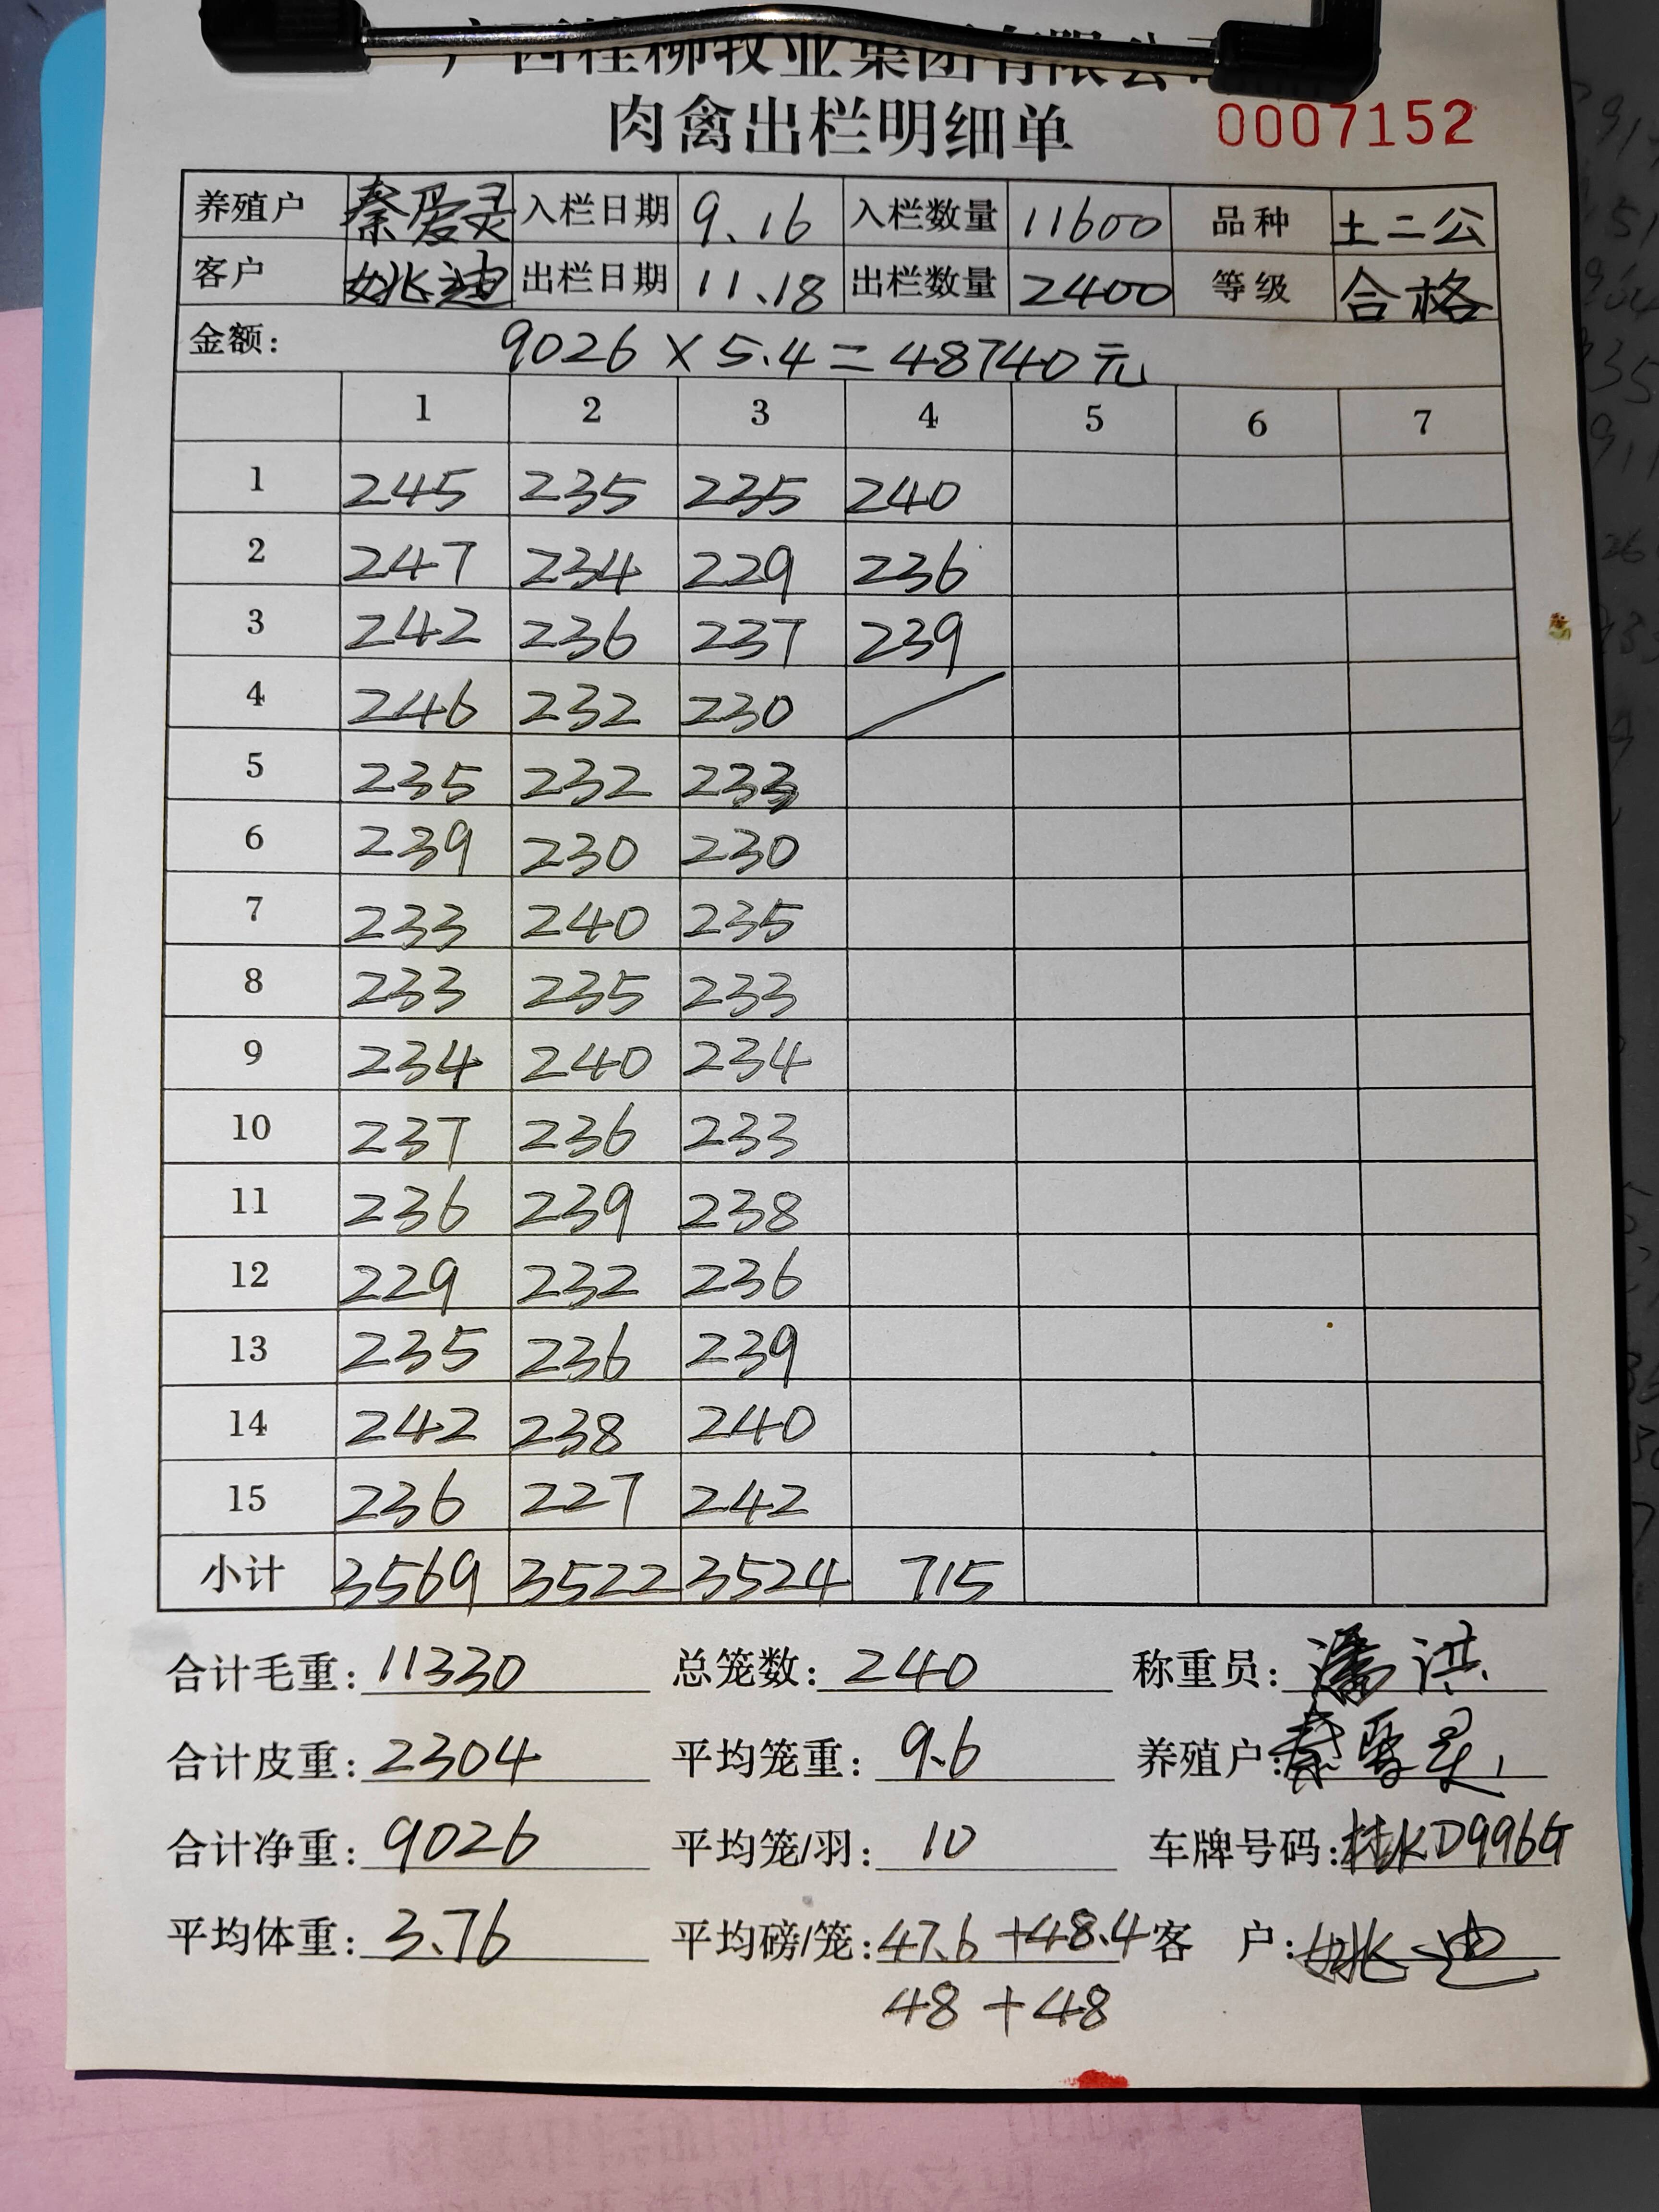 广西桂柳牧业集团有限公司
肉禽出栏明细单 0007152
养殖户 秦爱灵 入栏日期 9.16 入栏数量 11600 品种 土二公
客户 姚迪 出栏日期 11.18 出栏数量 2400 等级 合格
金额: 9026×5.4=48740元
1 2 3 4 5 6 7
1 245 235 235 240
2 247 234 229 236
3 242 236 237 239
4 246 232 230
5 235 232 233
6 239 230 230
7 233 240 235
8 233 235 233
9 234 240 234
10 237 236 233
11 236 239 238
12 229 232 236
13 235 236 239
14 242 238 240
15 236 227 242
小计 3569 3522 3524 715
合计毛重: 11330 总笼数: 240 称重员: 潘洪
合计皮重: 2304 平均笼重: 9.6 养殖户: 秦爱灵
合计净重: 9026 平均笼/羽: 10 车牌号码: 桂KD996G
平均体重: 3.76 平均磅/笼: 47.6+48.4 客户: 姚迪
48+48